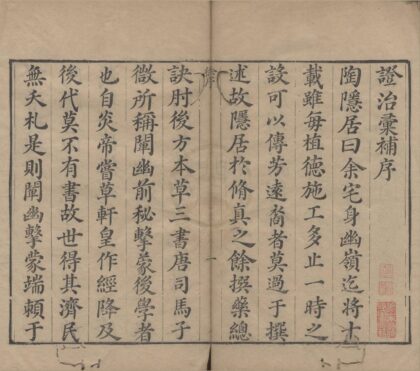 證治彙補序
陶隱居曰余宅身幽嶺迄將十
載雖每植德施工多止一時之
設可以傳芳遠裔者莫過于撰
述故隱居於脩真之餘撰藥總
訣肘後方本草三書唐司馬子
微所稱闡幽前秘擊蒙後學者
也自炎帝嘗草軒皇作經降及
後代莫不有書故世得其濟民
無夭札是則闡幽擊蒙端頼于